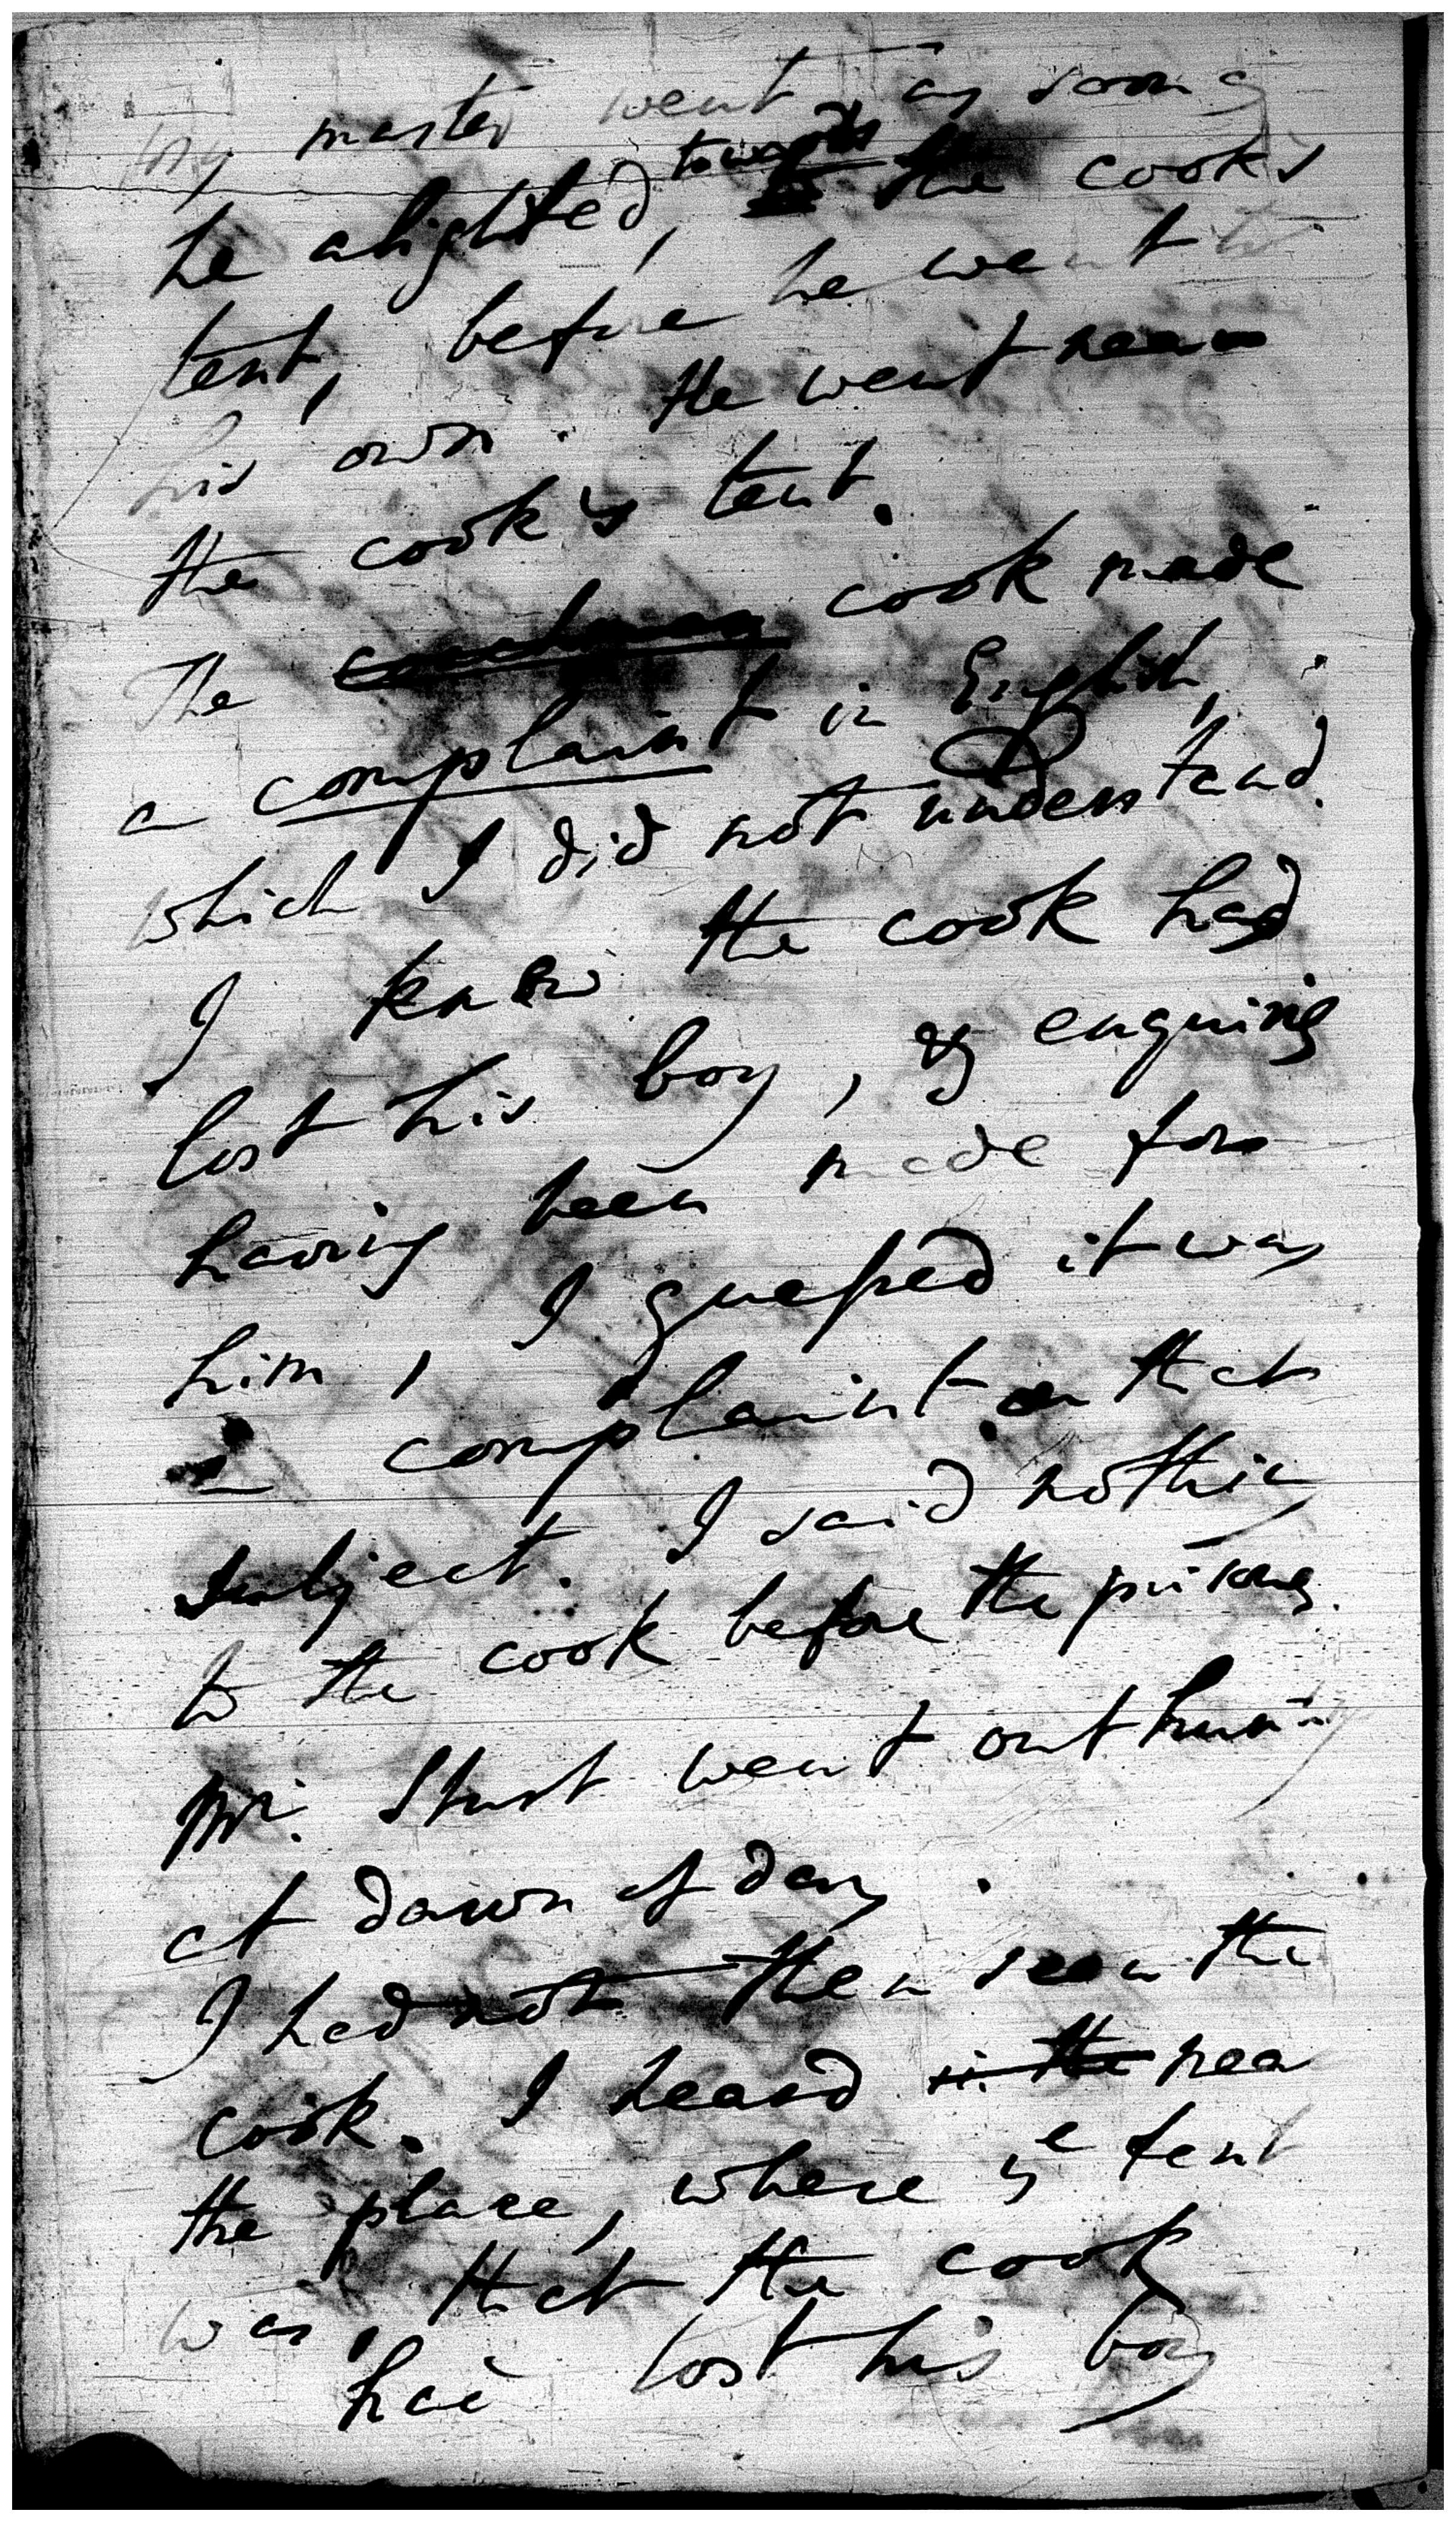 My master went as soon as
he alighted, towards the cook's
tent, before he went to
his own. He went near
the cook's tent.
The coachman cook made
a complaint in English,
which I did not understand.
I knew the cook had
lost his boy, & enquiries
having been made for
him, I guessed it was
a complaint on that
subject. I said nothing
to the cook before the
Mr. Stust went out hunting
at dawn of day.
I had not then seen the
cook. I heard in the near
the place, where ye tent
was, that the cook
had lost his boy